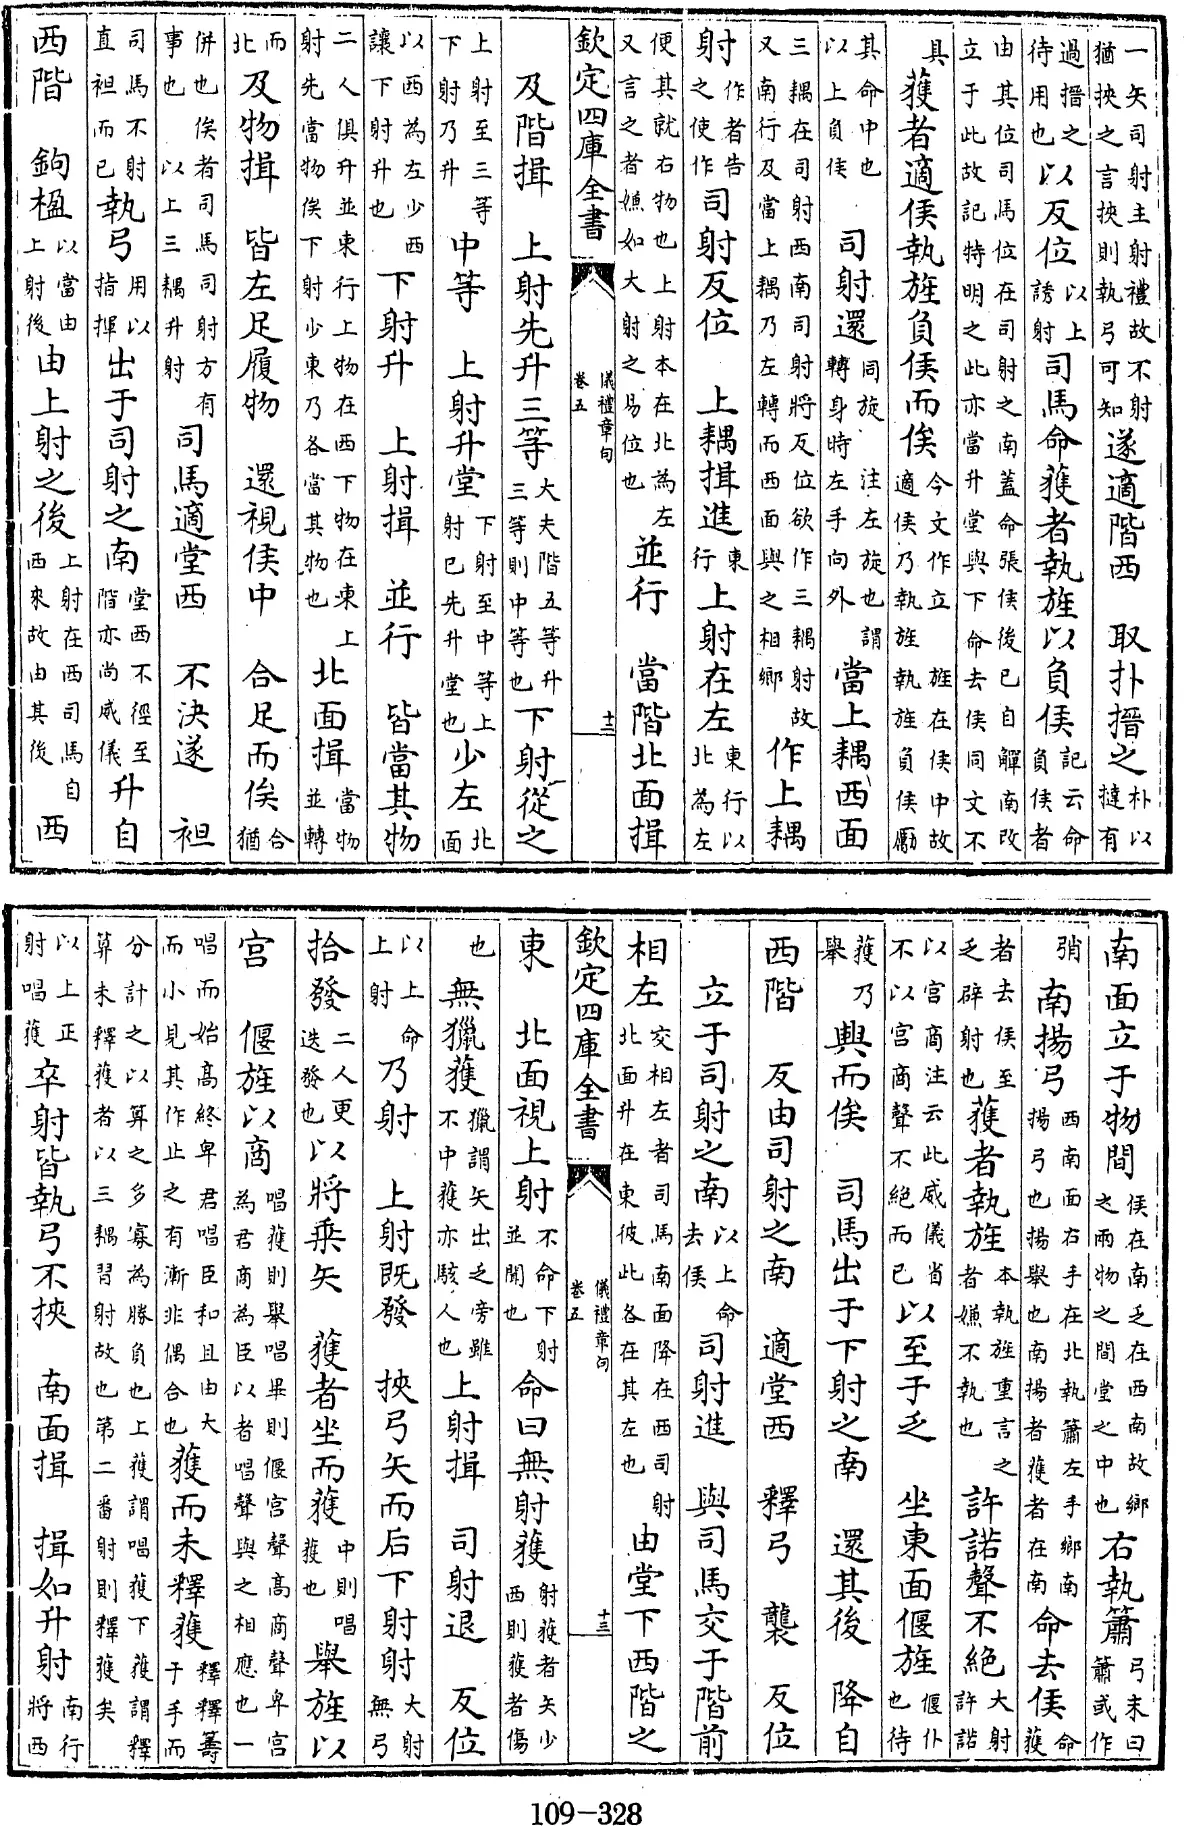 一矢司射主射禮故不射猶挾之言挾則執弓可知遂適階西 取扑搢之朴以撻有
過搢之待用也以反位以上誘射司馬命獲者執旌以負侯記云命負侯者
由其位司馬位在司射之南蓋命張侯後已自觶南改立于此故記特明之此亦當升堂與下命去侯同文不
具 獲者適侯執旌負侯而俟今文作立 旌在侯中故適侯乃執旌執旌負侯厲
其命中也以上負侯 司射還同旋 注左旋也謂轉身時左手向外當上耦西面
三耦在司射西南司射將反位欲作三耦射故又南行及當上耦乃左轉而西面與之相鄉作上耦
射作者告之使作 司射反位 上耦揖進東行上射在左東行以北為左
便其就右物也上射本在北為左又言之者嫌如大射之易位也 並行 當階北面揖
欽定四庫全書 儀禮章句 卷五 十二
及階揖 上射先升三等大夫階五等升三等則中等也下射從之
上射至三等下射乃升 中等 上射升堂下射至中等上射已先升堂也少左北面
以西為左少西讓下射升也 下射升 上射揖 並行 皆當其物
二人俱升並東行上物在西下物在東上射先當物俟下射少東乃各當其物也北面揖當物並轉
而北及物揖 皆左足履物 還視侯中 合足而俟合猶
併也 俟者司馬司射方有事也 以上三耦升射 司馬適堂西 不決遂 袒
司馬不射直袒而已執弓用以指揮出于司射之南堂西不徑至階亦尚威儀升自
西階 鉤楹以當由上射後由上射之後上射在西司馬自西來故由其後西
南面立于物間侯在南乏在西南故鄉之兩物之間堂之中也右執簫弓末曰簫或作
弰 南揚弓西南面右手在北執簫左手鄉南揚弓也揚舉也南揚者獲者在南命去侯命獲
者去侯至乏辟射也獲者執旌本執旌重言之者嫌不執也 許諾聲不絕大射許諾
以宮商注云此威儀省不以宮商聲不絕而已以至于乏 坐東面偃旌偃仆也待
獲乃舉 興而俟 司馬出于下射之南 還其後 降自
西階 反由司射之南 適堂西 釋弓 襲 反位
立于司射之南以上命去侯 司射進 與司馬交于階前
相左交相左者司馬南面降在西司射北面升在東彼此各在其左也 由堂下西階之
欽定四庫全書 儀禮章句 卷五 十三
東 北面視上射不命下射並聞也 命曰無射獲射獲者矢少西則獲者傷
也 無獵獲獵謂矢出乏旁雖不中獲亦駭人也上射揖 司射退 反位
以上命上射 乃射 上射既發 挾弓矢而后下射射大射無弓
拾發二人更迭發也以將乘矢 獲者坐而獲中則唱獲也舉旌以
宮 偃旌以商唱獲則舉唱畢則偃宮聲高商聲卑宮為君商為臣以者唱聲與之相應也一
唱而始高終卑君唱臣和且由大而小見其作止之有漸非偶合也獲而未釋獲釋釋籌于手而
分計之以算之多寡為勝負也上獲謂唱獲下獲謂釋算未釋獲者以三耦習射故也第二番射則釋獲矣
以上正射唱獲卒射皆執弓不挾 南面揖 揖如升射南行將西
109-328